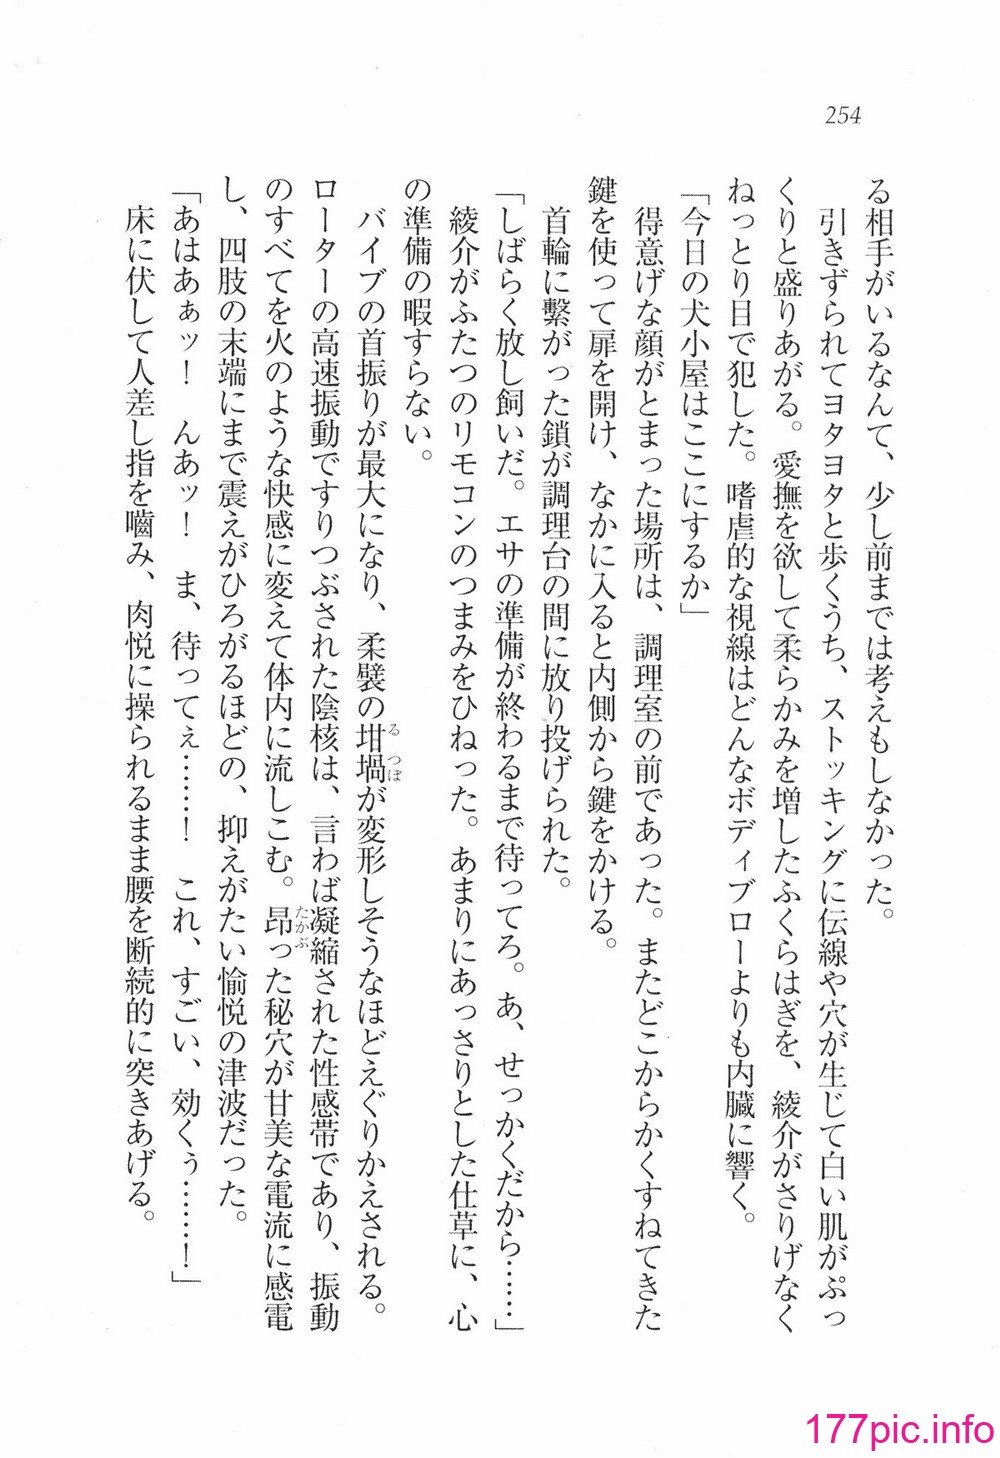 254
る相手がいるなんて、少し前までは考えもしなかった。
引きずられてヨタヨタと歩くうち、ストッキングに伝線や穴が生じて白い肌がぷっ
くりと盛りあがる。愛撫を欲して柔らかみを増したふくらはぎを、綾介がさりげなく
ねっとり目で犯した。嗜虐的な視線はどんなボディブローよりも内臓に響く。
「今日の犬小屋はここにするか」
得意げな顔がとまった場所は、調理室の前であった。またどこからかくすねてきた
鍵を使って扉を開け、なかに入ると内側から鍵をかける。
首輪に繋がった鎖が調理台の間に放り投げられた。
「しばらく放し飼いだ。エサの準備が終わるまで待ってろ。あ、せっかくだから……」
綾介がふたつのリモコンのつまみをひねった。あまりにあっさりとした仕草に、心
の準備の暇すらない。
バイブの首振りが最大になり、柔襞の坩堝が変形しそうなほどえぐりかえされる。
ローターの高速振動ですりつぶされた陰核は、言わば凝縮された性感帯であり、振動
のすべてを火のような快感に変えて体内に流しこむ。昂った秘穴が甘美な電流に感電
し、四肢の末端にまで震えがひろがるほどの、抑えがたい愉悦の津波だった。
「あはあぁッ！　んあッ！　ま、待ってぇ……！　これ、すごい、効くぅ……！」
床に伏して人差し指を嚙み、肉悦に操られるまま腰を断続的に突きあげる。
177pic.info